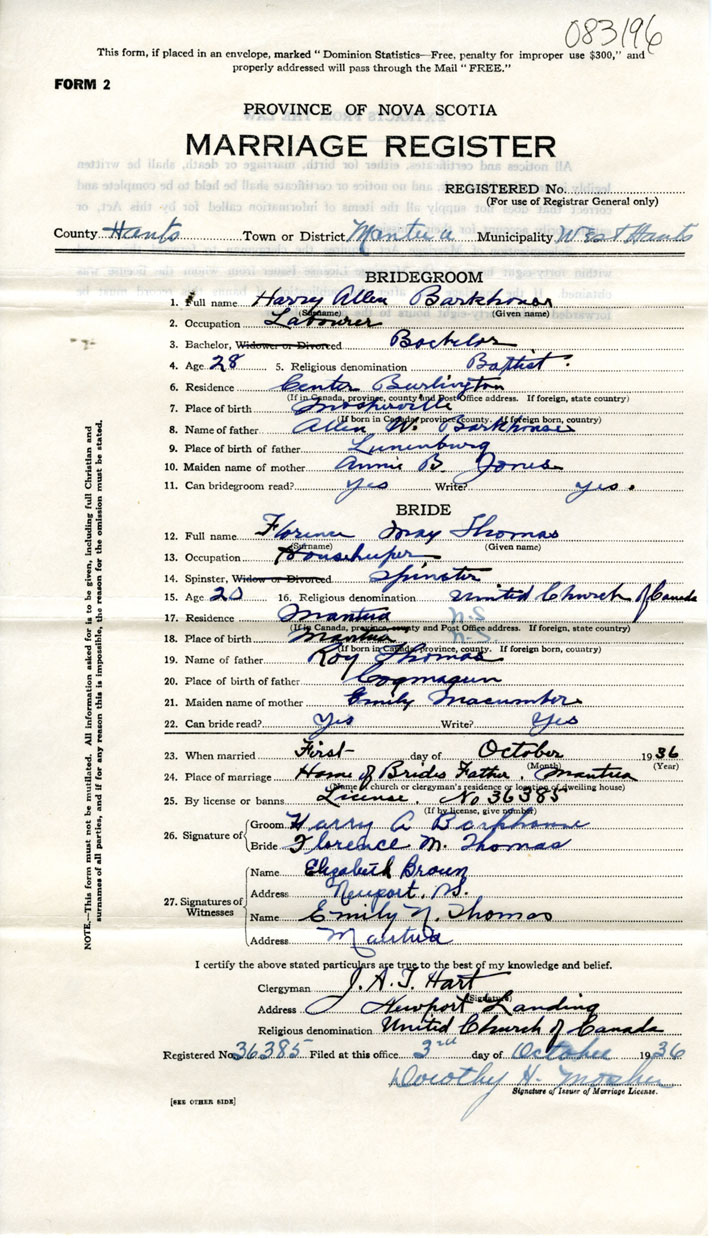 083196
This form, if placed in an envelope, marked "Dominion Statistics—Free, penalty for improper use $300," and
properly addressed will pass through the Mail "FREE."
FORM 2
PROVINCE OF NOVA SCOTIA
MARRIAGE REGISTER
REGISTERED No.
(For use of Registrar General only)
County Hants Town or District Mantua Municipality West Hants
BRIDEGROOM
1. Full name Harry Allen Barkhouse
(Surname) (Given name)
2. Occupation Labourer
3. Bachelor, Widower or Divorced Bachelor
4. Age 28 5. Religious denomination Baptist.
6. Residence Center Burlington
(If in Canada, province, county and Post Office address. If foreign, state country)
7. Place of birth Mosherville
(If born in Canada, province, county. If foreign born, country)
8. Name of father Allen W. Barkhouse
9. Place of birth of father Lunenburg
10. Maiden name of mother Annie B Jones
11. Can bridegroom read? Yes Write? yes.
BRIDE
12. Full name Florence May Thomas
(Surname) (Given name)
13. Occupation Housekeeper
14. Spinster, Widow or Divorced Spinster
15. Age 20 16. Religious denomination United Church of Canada
17. Residence Mantua N.S.
(If in Canada, province, county and Post Office address. If foreign, state country)
18. Place of birth Mantua N.S.
(If born in Canada, province, county. If foreign born, country)
19. Name of father Roy Thomas
20. Place of birth of father Cogmagun
21. Maiden name of mother Emily Macumber
22. Can bride read? Yes Write? Yes
23. When married First day of October 1936
(Month) (Year)
24. Place of marriage Home of Brides Father, Mantua
(Name of church or clergyman's residence or location of dwelling house)
25. By license or banns License. No 36385
(If by license, give number)
26. Signature of Groom Harry A Barkhouse
Bride Florence M. Thomas
27. Signatures of Witnesses Name Elizabeth Brown
Address Newport, N.S.
Name Emily N. Thomas
Address Mantua
I certify the above stated particulars are true to the best of my knowledge and belief.
Clergyman J. A. T. Hart
(Signature)
Address Newport Landing
Religious denomination United Church of Canada
Registered No. 36385 Filed at this office 3rd day of October 1936
Dorothy H. Mosher
Signature of Issuer of Marriage License.
[SEE OTHER SIDE]
NOTE.—This form must not be mutilated. All information asked for is to be given, including full Christian and
surnames of all parties, and if for any reason this is impossible, the reason for the omission must be stated.